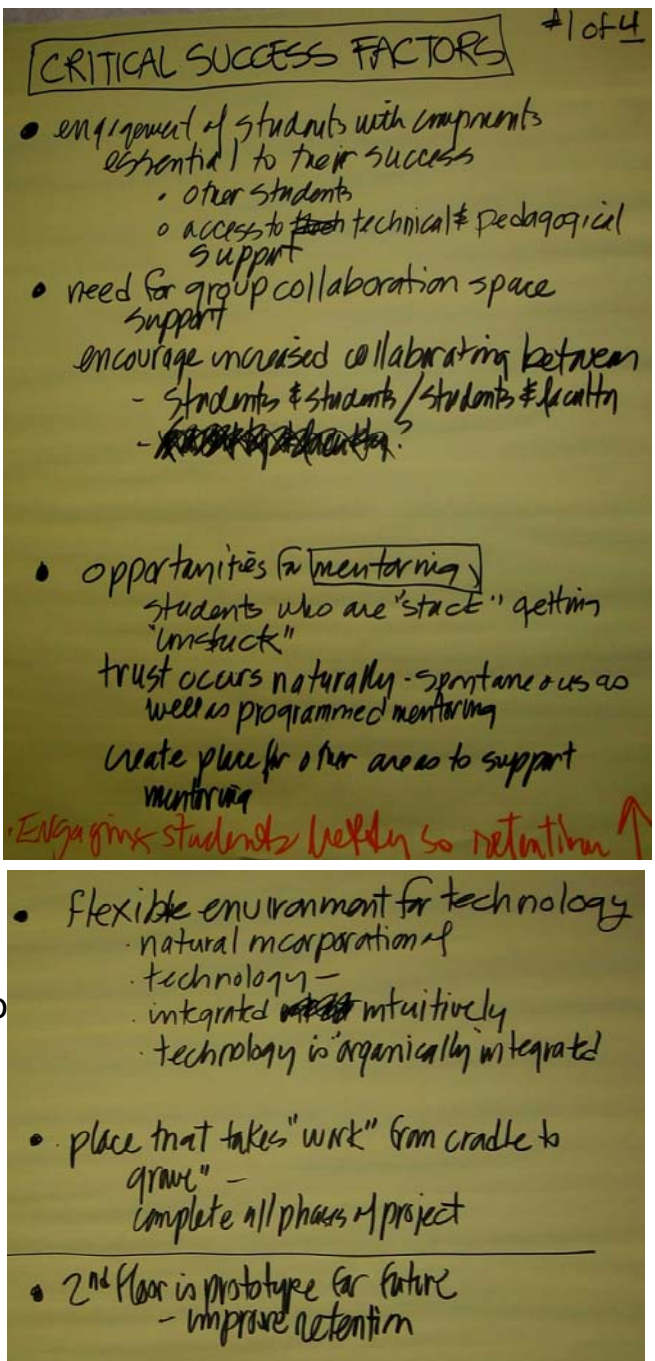 #1 of 4
CRITICAL SUCCESS FACTORS
• engagement of students with components
essential to their success
• other students
o access to technical & pedagogical
support
• need for group collaboration space
support
encourage increased collaborating between
- students & students / students & faculty
- ?
• opportunities for mentoring,
students who are "stuck" getting
"unstuck"
trust occurs naturally - spontaneous as
well as programmed mentoring
create place for other areas to support
mentoring
• Engaging students better so retention ↑
• flexible environment for technology
· natural incorporation of
· technology –
· integrated intuitively
· technology is "organically" integrated
• place that takes "work" from cradle to
grave" –
complete all phases of project
• 2nd floor is prototype for future
- improve retention